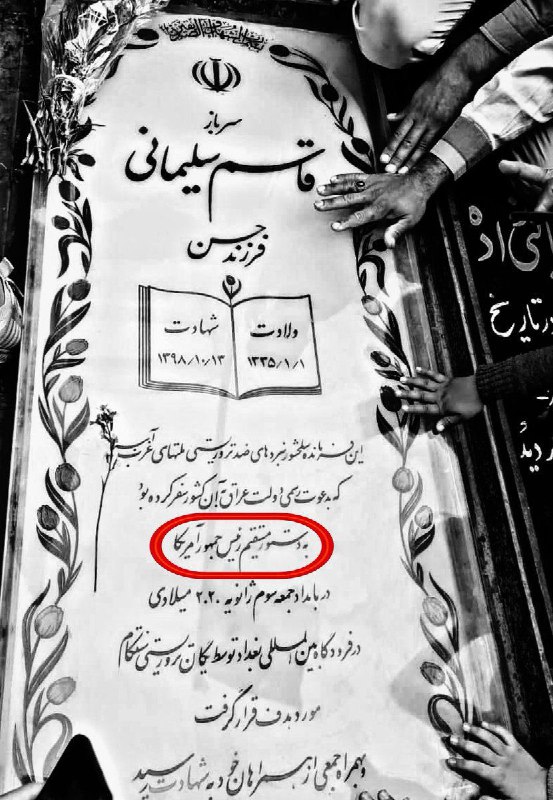 سرباز
قاسم سلیمانی
فرزند حسن
ولادت
۱۳۳۵/۱/۱
شهادت
۱۳۹۸/۱۰/۱۳
این فرمانده سلحشور نبردهای ضد تروریستی ملتهای غرب آسیا
که به دعوت رسمی دولت عراق به آن کشور سفر کرده بود
به دستور مستقیم رئیس جمهور آمریکا
در بامداد جمعه سوم ژانویه ۲۰۲۰ میلادی
در فرودگاه بین المللی بغداد توسط یگان تروریستی سنتکام
مورد هدف قرار گرفت
و بهمراه جمعی از همراهان خود به شهادت رسید
تاریخ